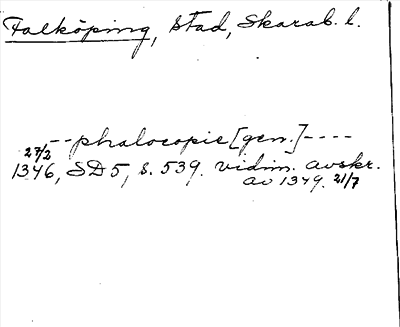 Falköping, stad, Skarab. l.
--phalocopie [gen.]----
27/2
1346, SD 5, s. 539. vidim. avskr.
av 1349. 21/7